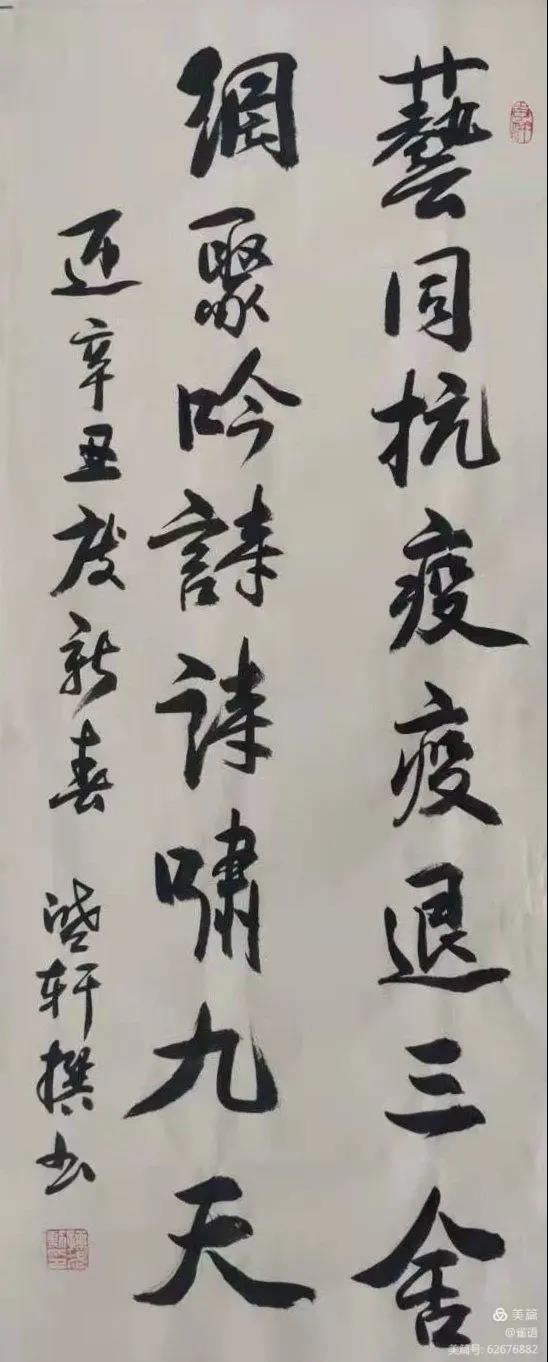 藝同抗疫疫退三舍
網聚吟詩詩嘯九天
迎辛丑度新春
軒撰书
美篇
@雀语
美篇号: 62676882